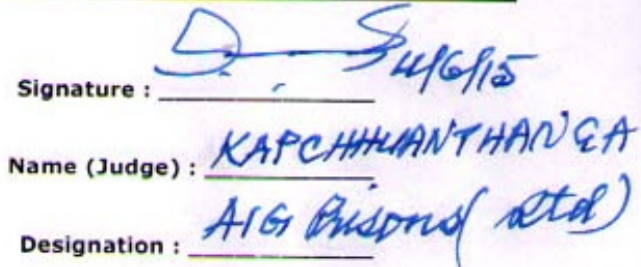 Signature : 4/6/15
Name (Judge) : KAPCHHUANTHANGA
Designation : AIG Prisons (Rtd)